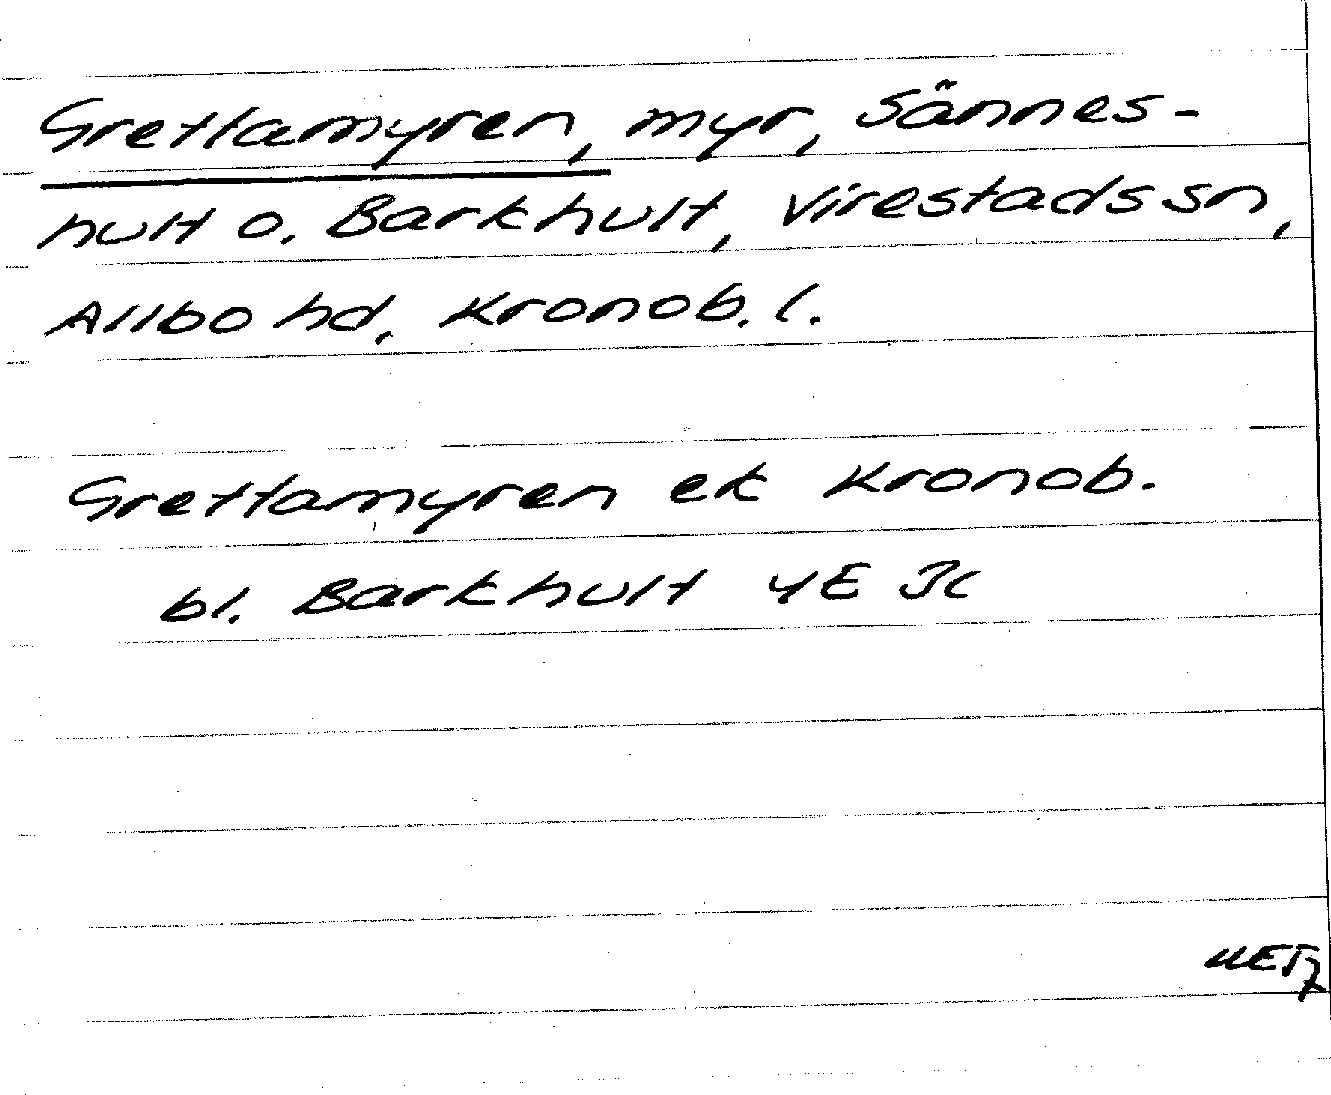 Gretlamyren, myr, Sännes-
hult o. Barkhult, Virestads sn,
Allbo hd, Kronob. l.
Gretlamyren ek Kronob.
bl. Barkhult 4E